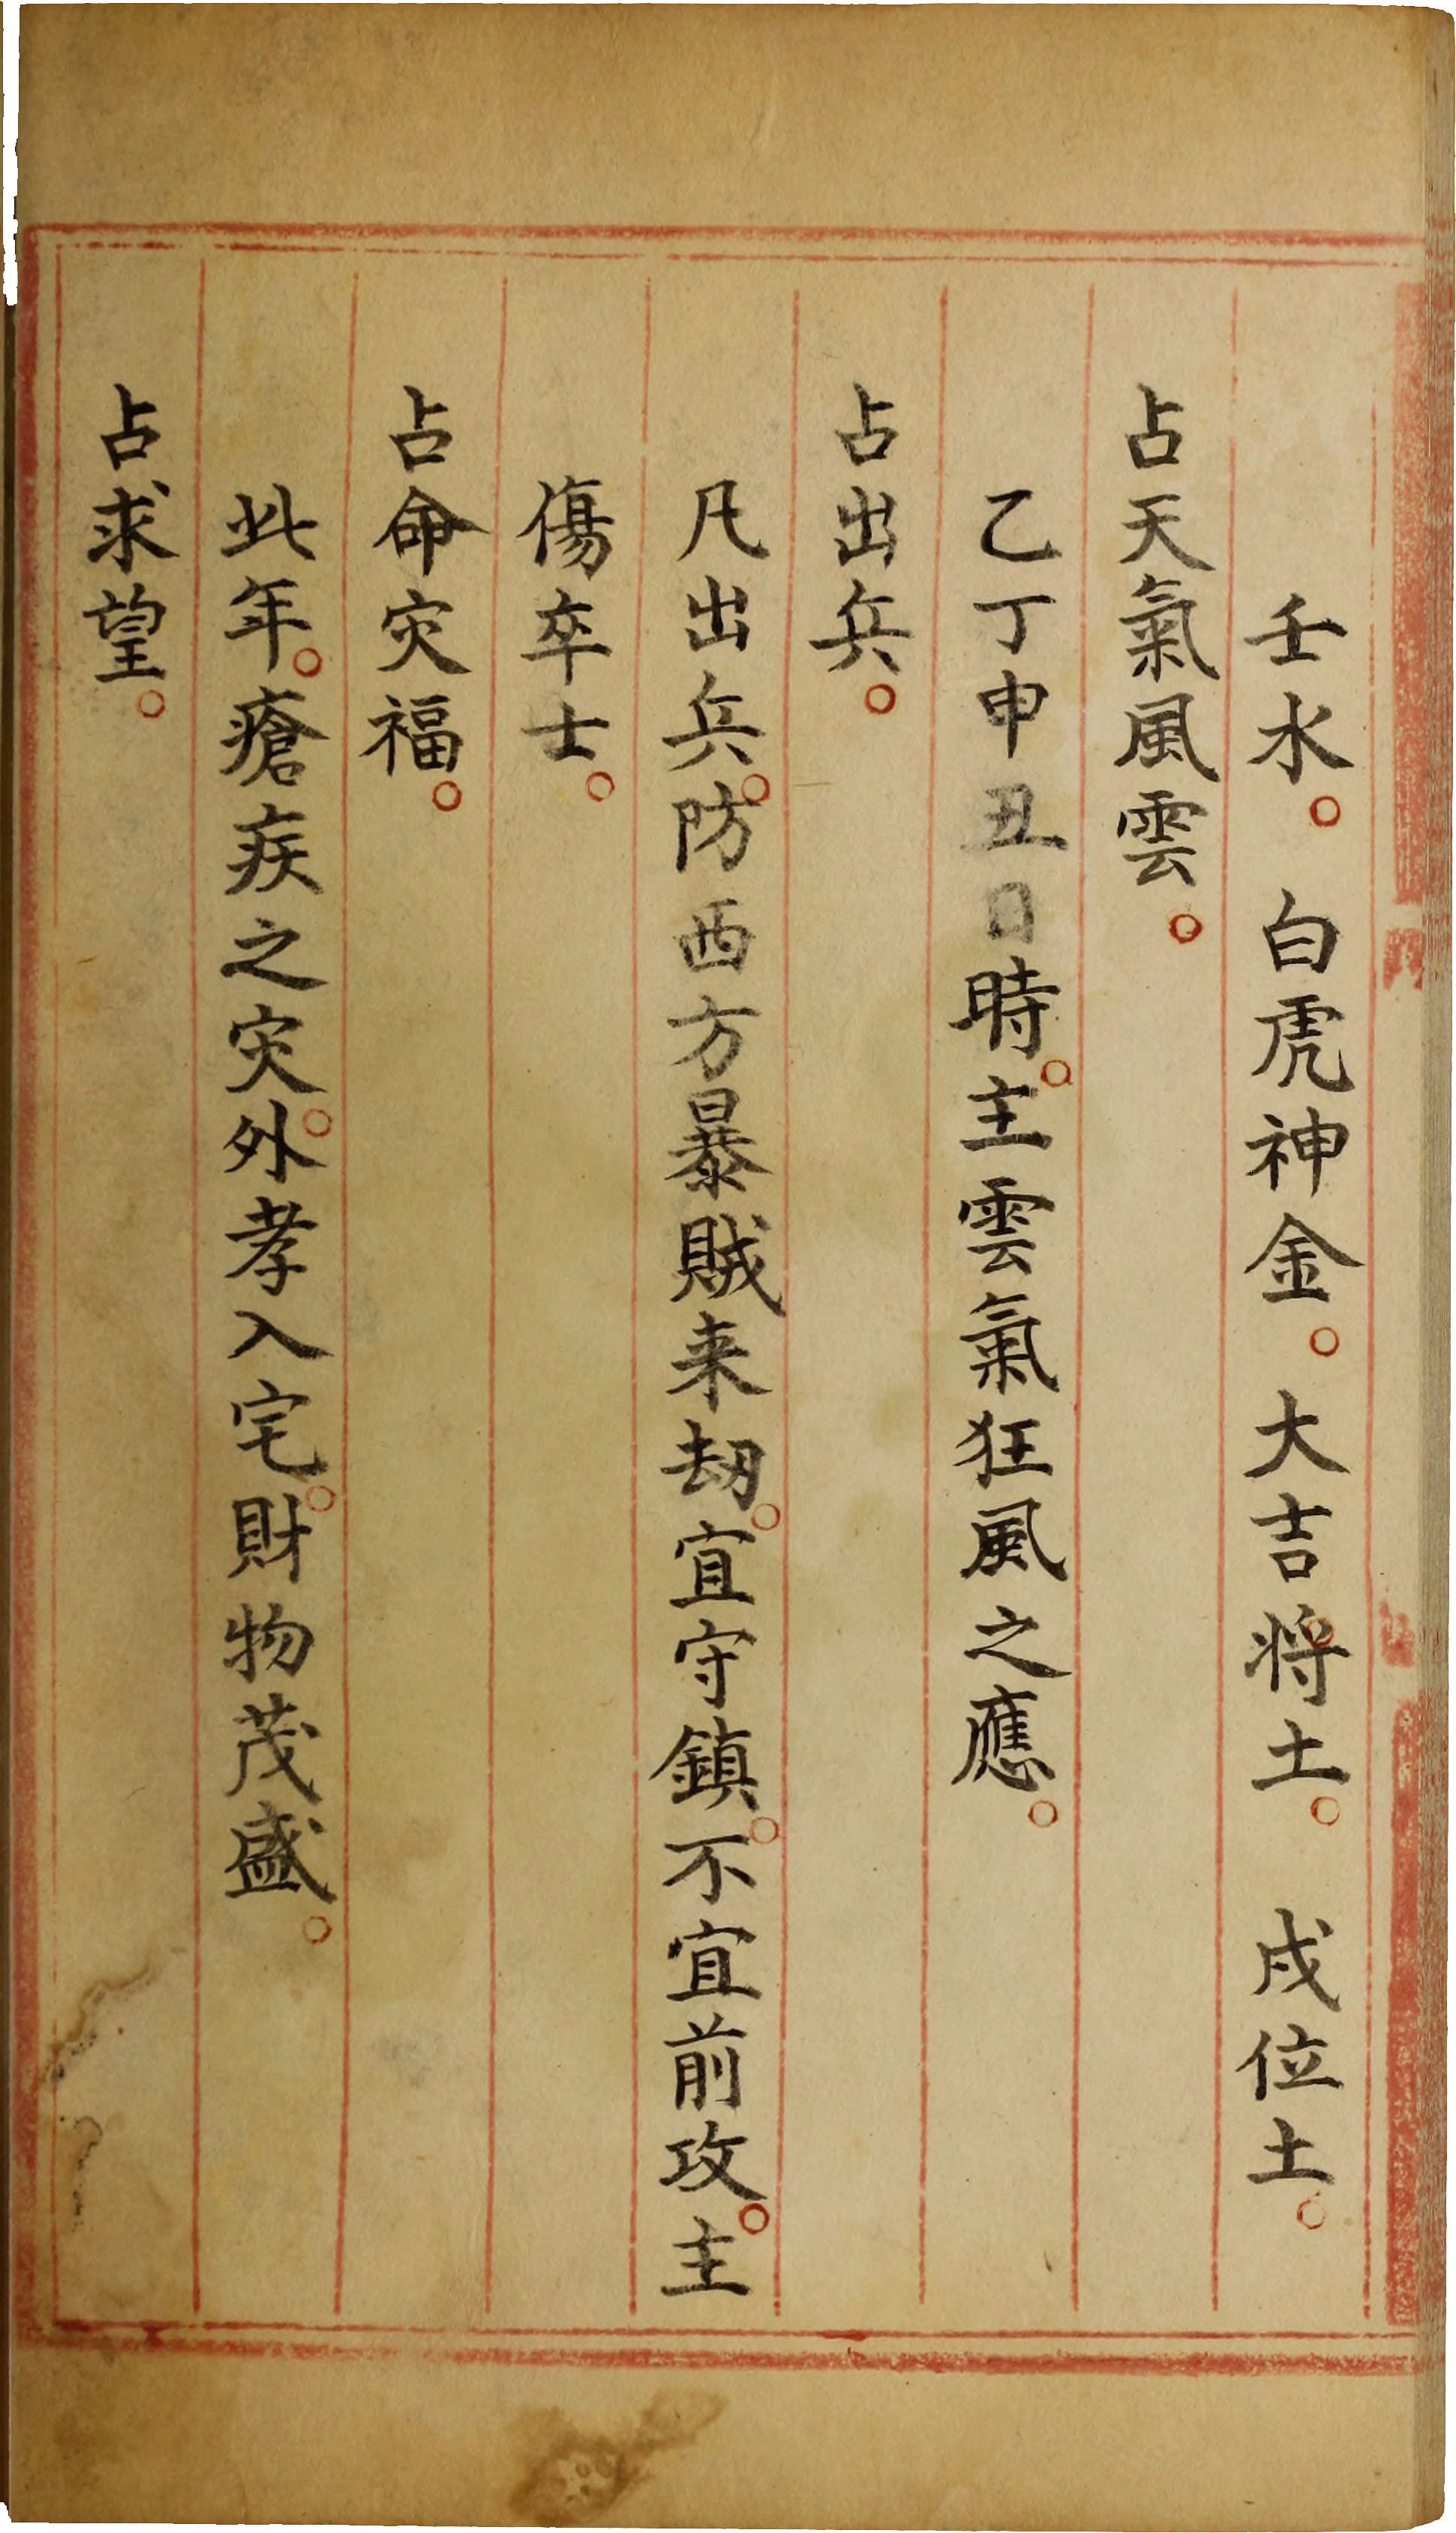 壬水。白虎神金。大吉将土。戌位土。
占天氣風雲。
乙丁申丑日時。主雲氣狂風之應。
占出兵。
凡出兵。防西方暴賊来刼。宜守鎮。不宜前攻。主
傷卒士。
占命灾福。
此年。瘡疾之灾。外孝入宅。財物茂盛。
占求望。